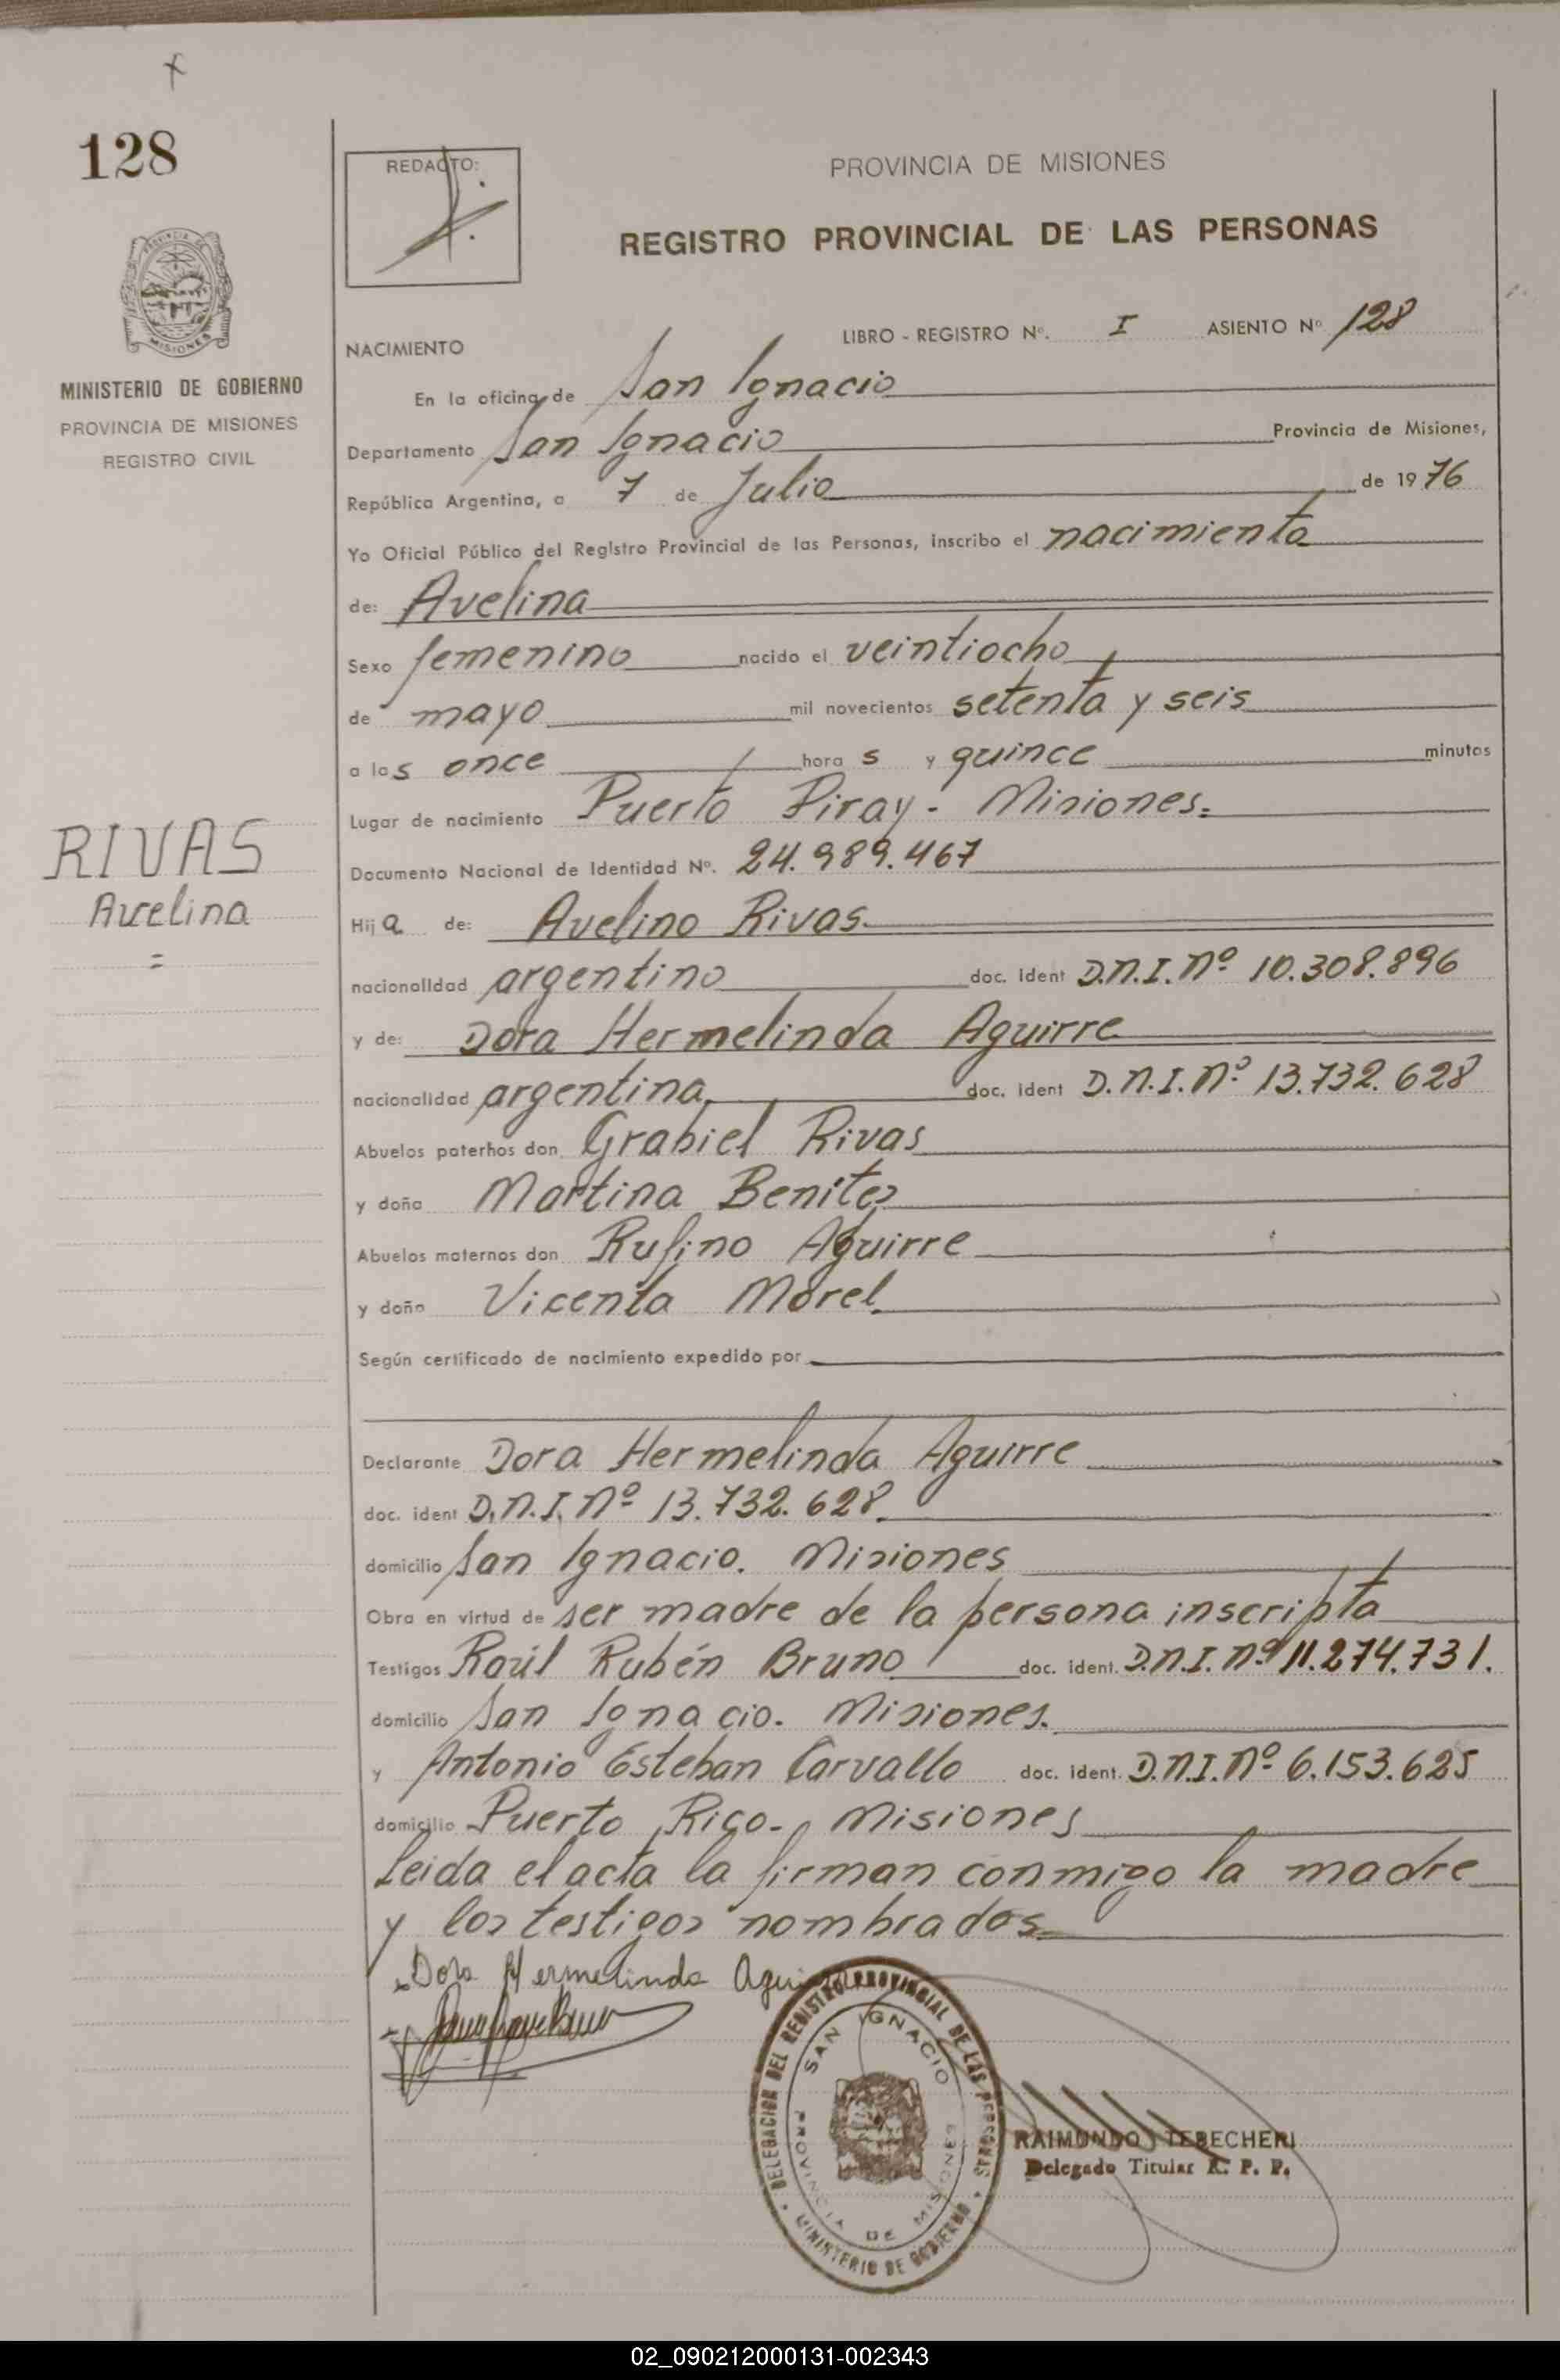 128
REDACTO:
PROVINCIA DE MISIONES
REGISTRO PROVINCIAL DE LAS PERSONAS
MISIONES
MINISTERIO DE GOBIERNO
PROVINCIA DE MISIONES
REGISTRO CIVIL
LIBRO - REGISTRO Nº. I ASIENTO Nº 128
NACIMIENTO
En la oficina de San Ignacio
Departamento San Ignacio Provincia de Misiones,
República Argentina, a 7 de Julio de 1976
Yo Oficial Público del Registro Provincial de las Personas, inscribo el nacimiento
de: Avelina
Sexo femenino nacido el veintiocho
de mayo mil novecientos setenta y seis
a las once horas y quince minutos
Lugar de nacimiento Puerto Piray - Misiones.
Documento Nacional de Identidad Nº. 24.989.467
RIVAS
Avelina
Hija de: Avelino Rivas
nacionalidad argentino doc. ident D.N.I. Nº 10.308.896
y de: Dora Hermelinda Aguirre
nacionalidad argentina doc. ident D.N.I. Nº 13.732.628
Abuelos paternos don Grabiel Rivas
y doña Martina Benitez
Abuelos maternos don Rufino Aguirre
y doña Vicenta Morel
Según certificado de nacimiento expedido por
Declarante Dora Hermelinda Aguirre
doc. ident D.N.I. Nº 13.732.628
domicilio San Ignacio. Misiones
Obra en virtud de ser madre de la persona inscripta
Testigos Raúl Rubén Bruno doc. ident. D.N.I. Nº 11.274.731.
domicilio San Ignacio. Misiones.
y Antonio Esteban Carvallo doc. ident. D.N.I. Nº 6.153.625
domicilio Puerto Rico - Misiones
Leida el acta la firman conmigo la madre
y los testigos nombrados
Dora Hermelinda Aguirre
DELEGACION DEL REGISTRO PROVINCIAL DE LAS PERSONAS
SAN IGNACIO
PROVINCIA DE MISIONES
MINISTERIO DE GOBIERNO
RAIMUNDO TEBECHERI
Delegado Titular R. P. P.
02_090212000131-002343